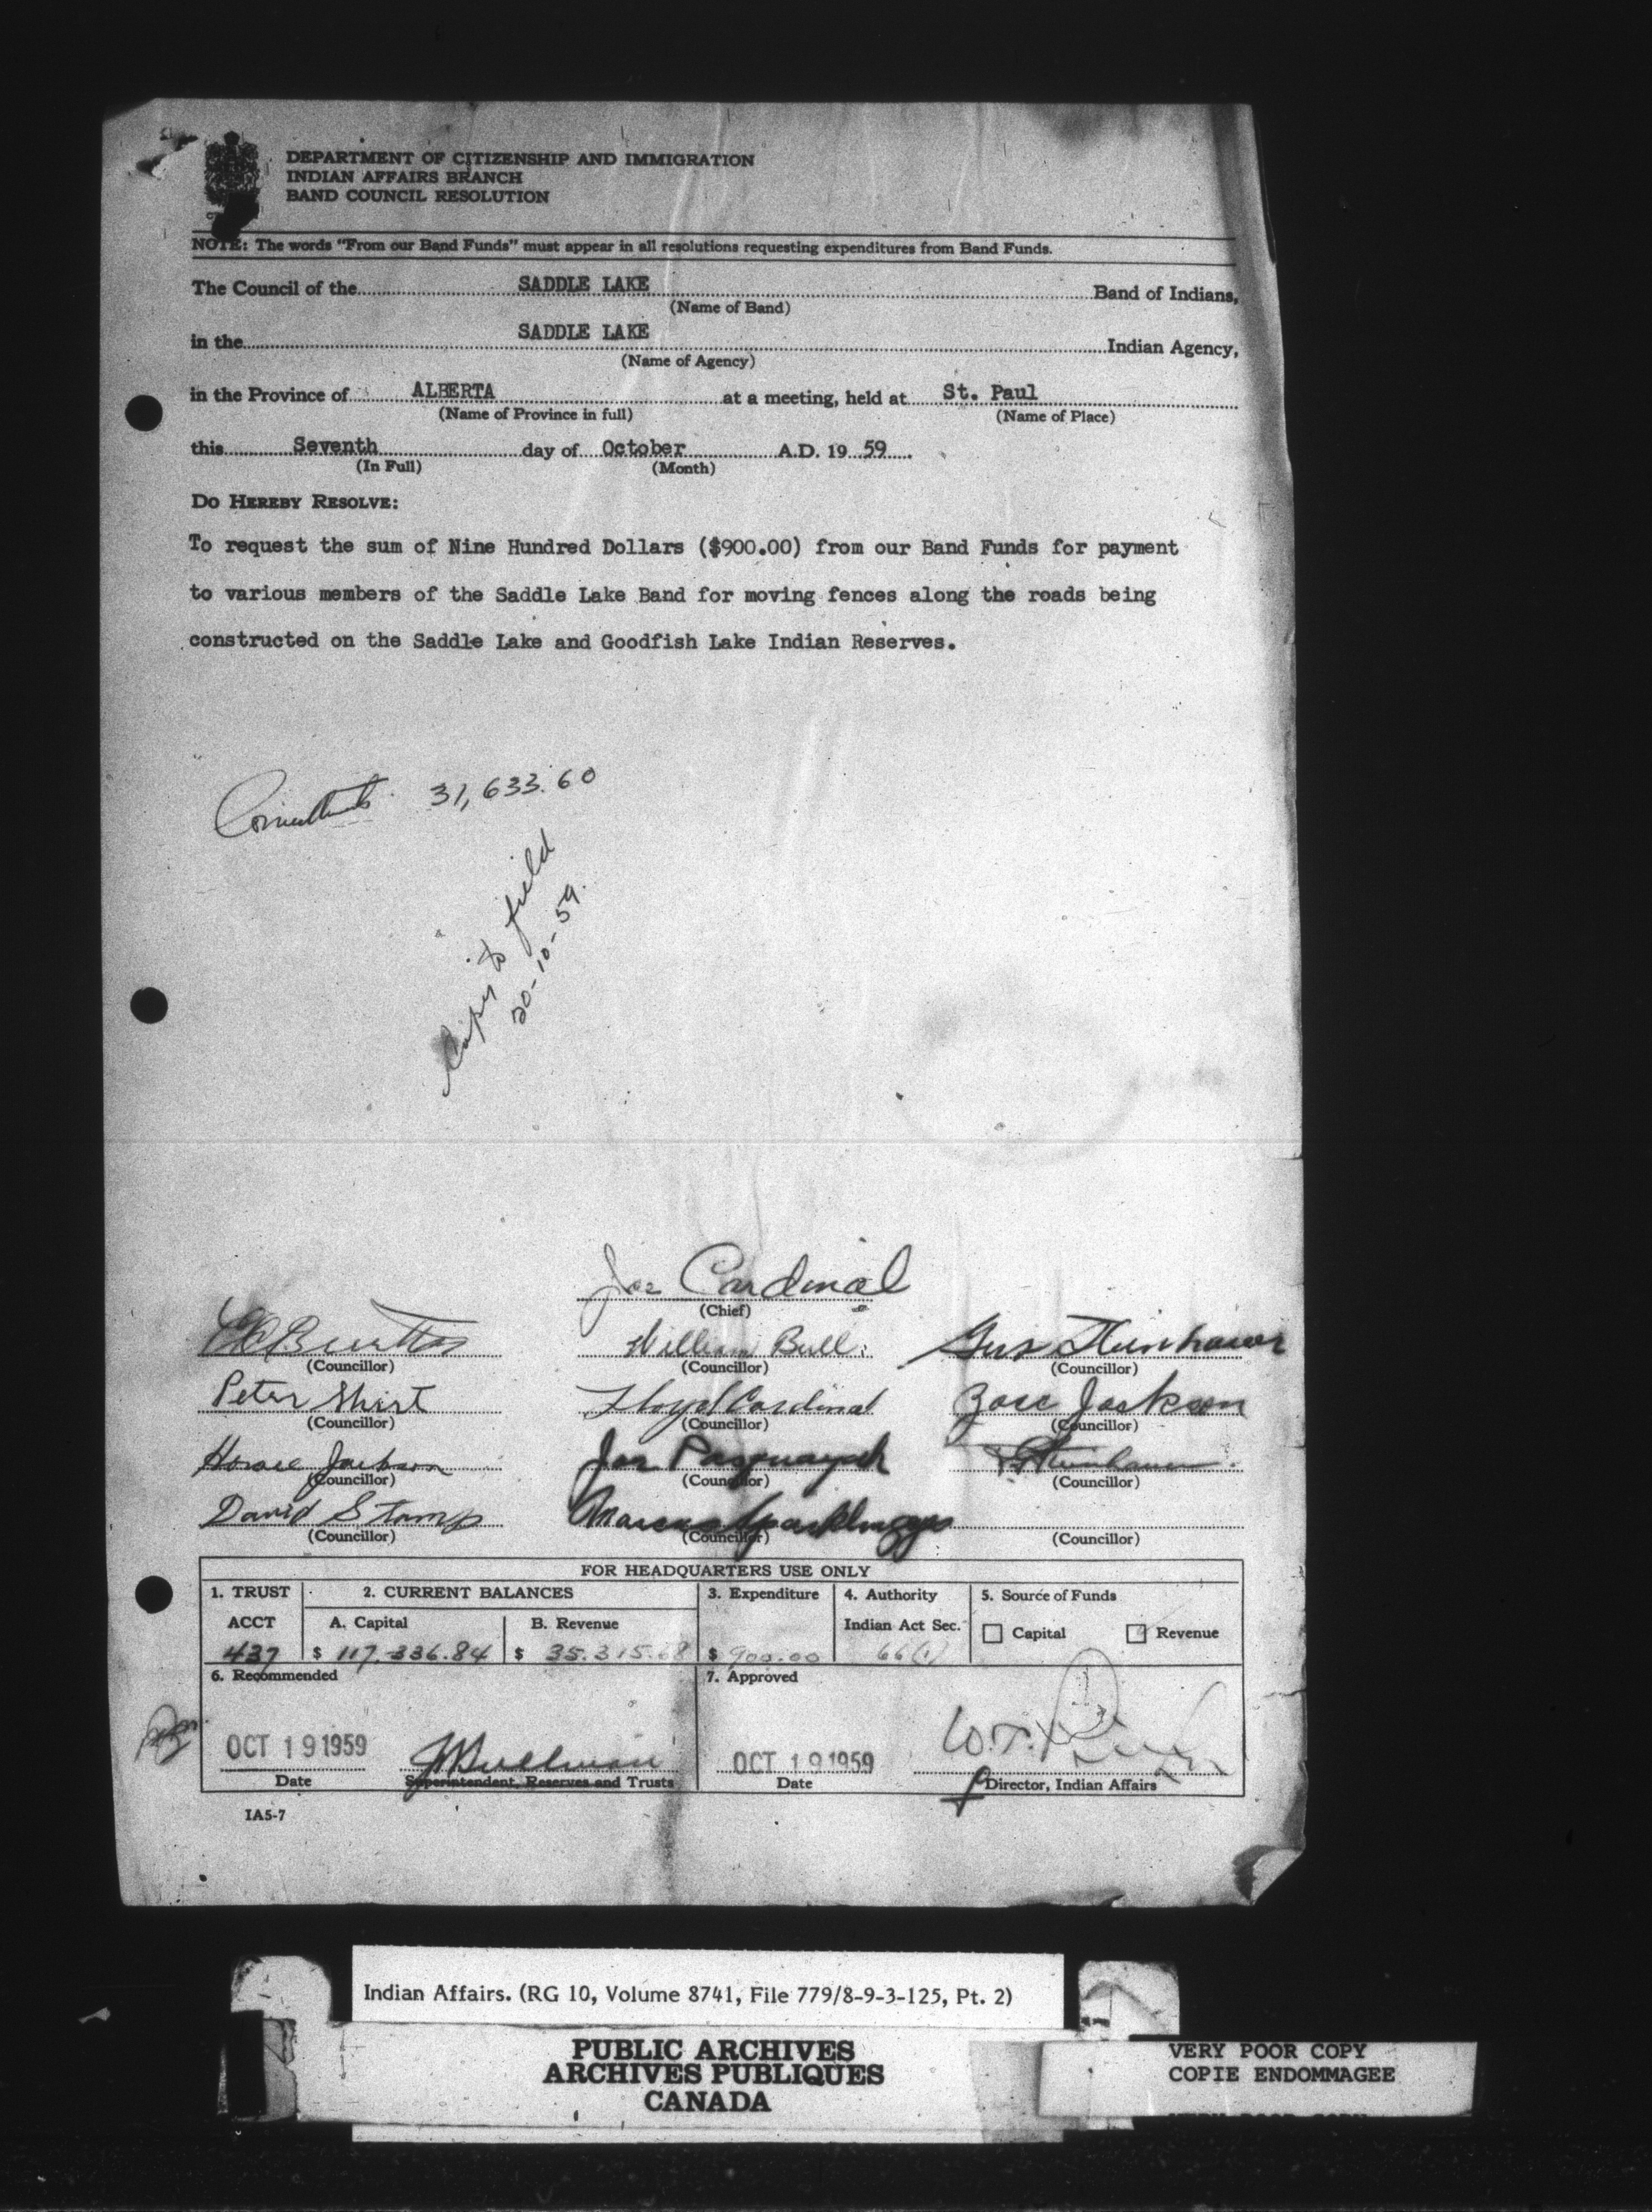 DEPARTMENT OF CITIZENSHIP AND IMMIGRATION
INDIAN AFFAIRS BRANCH
BAND COUNCIL RESOLUTION
NOTE: The words "From our Band Funds" must appear in all resolutions requesting expenditures from Band Funds.
The Council of the SADDLE LAKE Band of Indians,
(Name of Band)
in the SADDLE LAKE Indian Agency,
(Name of Agency)
in the Province of ALBERTA at a meeting, held at St. Paul
(Name of Province in full) (Name of Place)
this Seventh day of October A.D. 19 59.
(In Full) (Month)
DO HEREBY RESOLVE:
To request the sum of Nine Hundred Dollars ($900.00) from our Band Funds for payment
to various members of the Saddle Lake Band for moving fences along the roads being
constructed on the Saddle Lake and Goodfish Lake Indian Reserves.
31,633.60
Copy to field
20-10-59.
Joe Cardinal
(Chief)
William Bull
(Councillor) (Councillor) (Councillor)
Peter Shirt Lloyd Cardinal Jackson
(Councillor) (Councillor) (Councillor)
Horace Jackson Joe Steinhauer
(Councillor) (Councillor) (Councillor)
David Stamp Marcus
(Councillor) (Councillor) (Councillor)
FOR HEADQUARTERS USE ONLY
1. TRUST 2. CURRENT BALANCES 3. Expenditure 4. Authority 5. Source of Funds
ACCT A. Capital B. Revenue Indian Act Sec. Capital Revenue
437 $ 117,336.84 $ 35,315.68 $ 900.00 66(1)
6. Recommended 7. Approved
OCT 19 1959 OCT 19 1959
Date Superintendent, Reserves and Trusts Date Director, Indian Affairs
IA5-7
Indian Affairs. (RG 10, Volume 8741, File 779/8-9-3-125, Pt. 2)
PUBLIC ARCHIVES
ARCHIVES PUBLIQUES
CANADA
VERY POOR COPY
COPIE ENDOMMAGEE